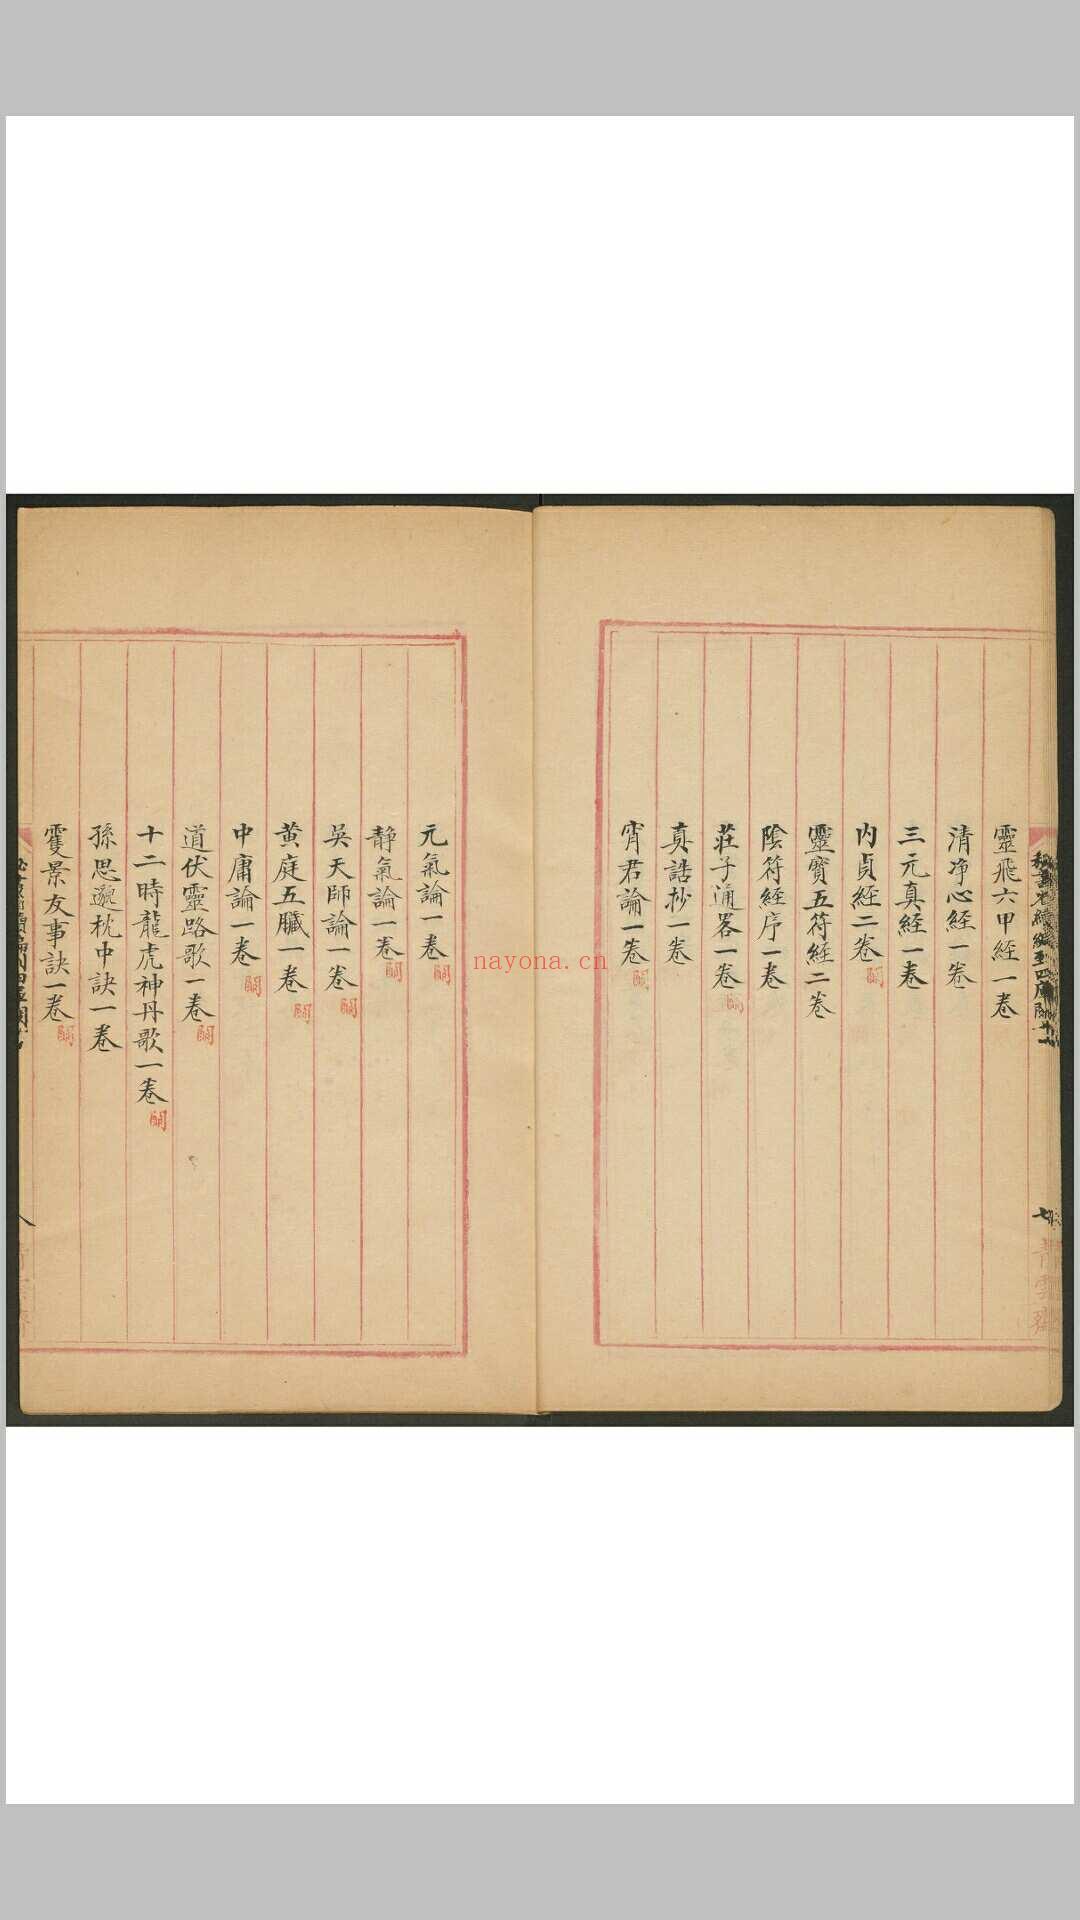 靈飛六甲經一卷
清净心經一卷
三元真經一卷
内貞經二卷 闕
靈寳五符經二卷
陰符經序一卷
莊子通畧一卷 闕
真誥抄一卷
宵君論一卷 闕
七
元氣論一卷 闕
静氣論一卷 闕
吳天師論一卷 闕
黄庭五臟一卷 闕
中庸論一卷 闕
道伏靈路歌一卷 闕
十二時龍虎神丹歌一卷 闕
孫思邈枕中訣一卷
景友事訣一卷 闕
八
nayona.cn